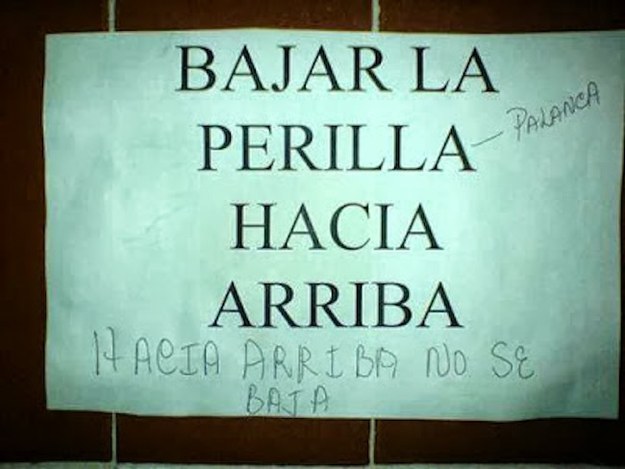 BAJAR LA
PERILLA - PALANCA
HACIA
ARRIBA
HACIA ARRIBA NO SE
BAJA